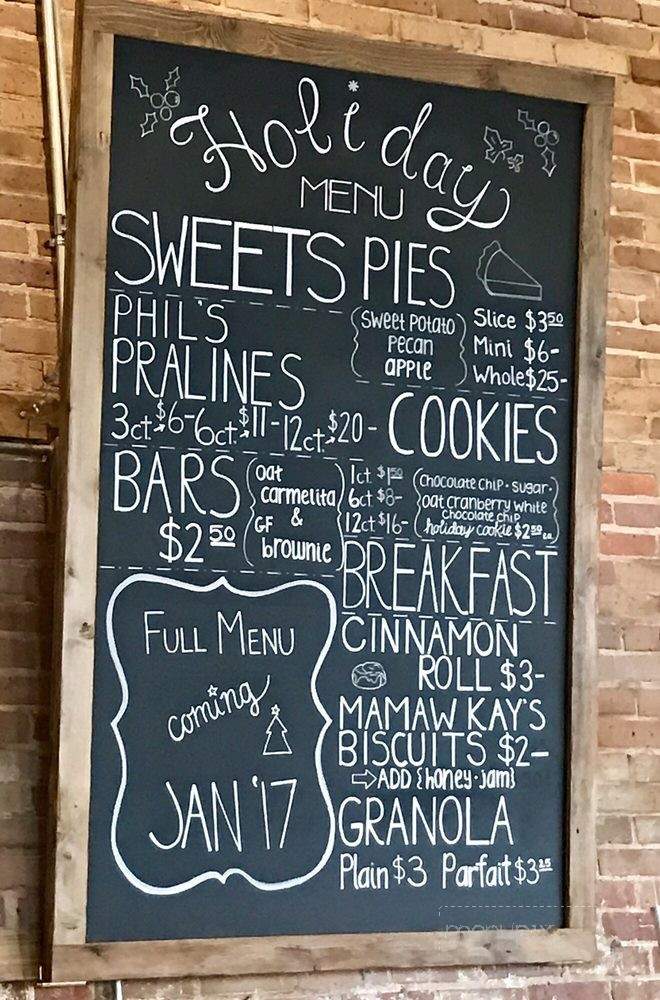 Holiday
MENU
SWEETS
PHIL'S
PRALINES
3ct→$6- 6ct→$11- 12ct→$20-
PIES
{Sweet Potato
Pecan
APPLE}
Slice $3 50
Mini $6-
Whole $25-
BARS
$2 50
{oat
carmelita
&
GF
brownie}
COOKIES
1ct $1 50
6ct $8-
12ct $16-
{CHOCOLATE CHIP · SUGAR ·
oat cranberry white
chocolate chip
holiday cookie $2 50 ea.}
BREAKFAST
CINNAMON
ROLL $3-
MAMAW KAY'S
BISCUITS $2-
⇨ ADD {honey · jam}
GRANOLA
Plain $3 Parfait $3 25
FULL MENU
coming
JAN '17
menupix